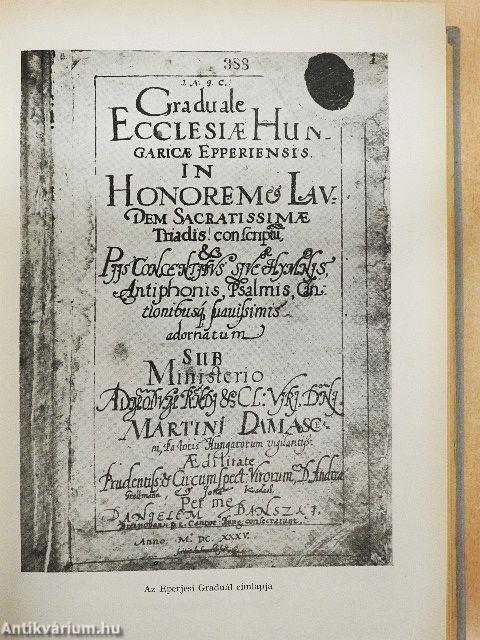 388
1
J. N. J. C.
Graduale
ECCLESIÆ HUN-
GARICÆ EPPERIENSIS.
IN
HONOREM & LAV-
DEM SACRATISSIMÆ
Triadis! conscriptũ,
&
PIJS CONCENTIBVS SIVE HYMNIS,
Antiphonis, Psalmis, Can-
tionibusq suavissimis
adornatum
SUB
Ministerio
MARTINI DAMASC-
ni, Pastoris Hungarorum vigilantiss:
Ædilitate
Prudentiss: & Circumspect: Virorum, D. Andreæ
& Jonæ
Per me
DANIELEM BANSZKI.
consecratum.
Anno. M. DC. XXXV.
Az Eperjesi Graduál címlapja
Antikvárium.hu